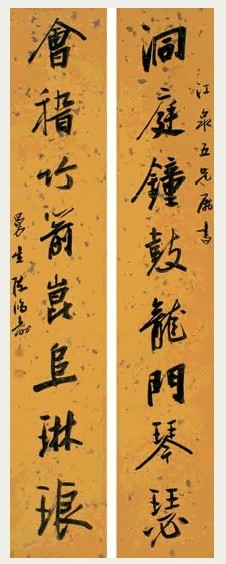 江泉五兄屬書
洞庭鐘鼓龍門琴瑟
會稽竹箭崑𠀉琳琅
曼生陳鴻壽